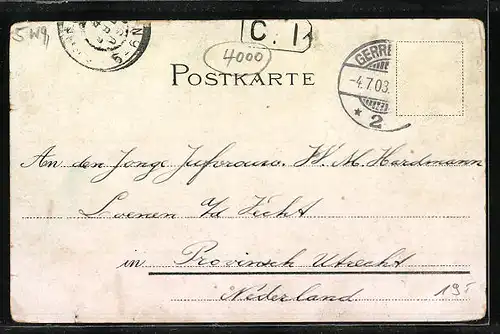 5 W9
C. 1
4000
5-6N
POSTKARTE
GERRE
-4.7.03.
* 2
An den Jonge Juforouw. W. M. Hardmann
Loenen t/d Vecht
in Provinsch Utrecht
Nederland
195